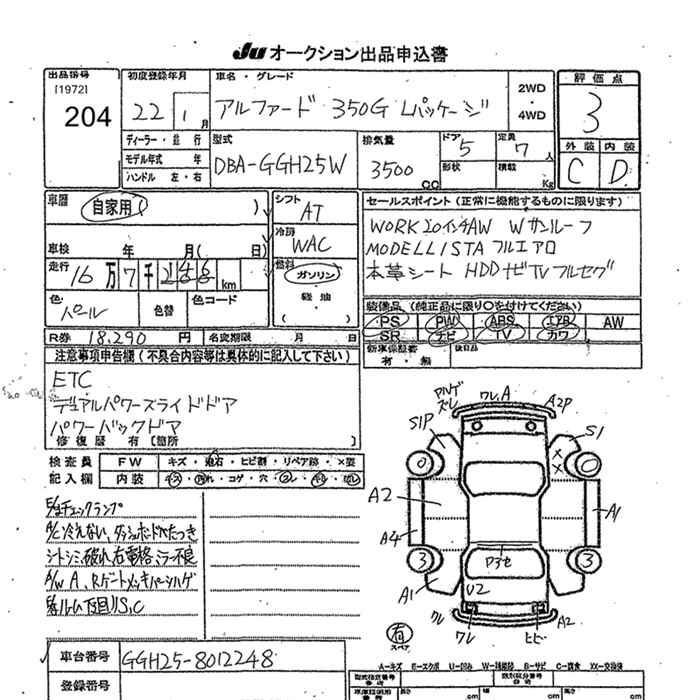 JU オークション出品申込書
出品番号
[1972]
204
初度登録年月
22 1 月
車名・グレード
アルファード 350G Lパッケージ
2WD
・
4WD
評価点
3
外装 内装
C D
ディーラー・並行
モデル年式 年
ハンドル 左・右
型式
DBA-GGH25W
排気量
3500
CC
ドア
5
形状
定員
7 人
積載
Kg
車歴
自家用(
)
車検 年 月( 日)
走行 16万7千
km
色
パール
色替
色コード
シフト
AT
冷房
WAC
燃料
ガソリン
軽油
( )
セールスポイント(正常に機能するものに限ります)
WORK 20インチAW Wサンルーフ
MODELLISTA フルエアロ
本革シート HDDナビTVフルセグ
装備品(純正品に限り○を付けてください)
PS PW ABS エアB AW
SR ナビ TV カワ
新車保証書
有・無
後日品
R券 18,290 円
名変期限 月 日
注意事項申告欄(不具合内容等は具体的に記入して下さい)
ETC
デュアルパワースライドドア
パワーバックドア
修復歴 有〔箇所 〕
検査員
記入欄
FW
キズ・飛石・ヒビ割・リペア跡・×要
内装
キズ・汚れ・コゲ・穴
チェックランプ
A/C冷えない、ダッシュボードベタつき
シートシミ、破れ、右電格ミラー不良
A/W A、Rゲートメッキパーツハゲ
下回りS,C
アルゲ
ズレ
ワレ,A
A2P
S1P
S1
0
0
×
×
A2
A4
A1
3
3
A1
U2
ワレ
ワレ
ヒビ
A2
有
スペア
車台番号
GGH25-8012248
登録番号
A-キズ E-エクボ U-凹み W-補修跡 S-サビ C-腐食 XX-交換済
型式指定番号
類別区分番号
長さ
cm
cm
cm